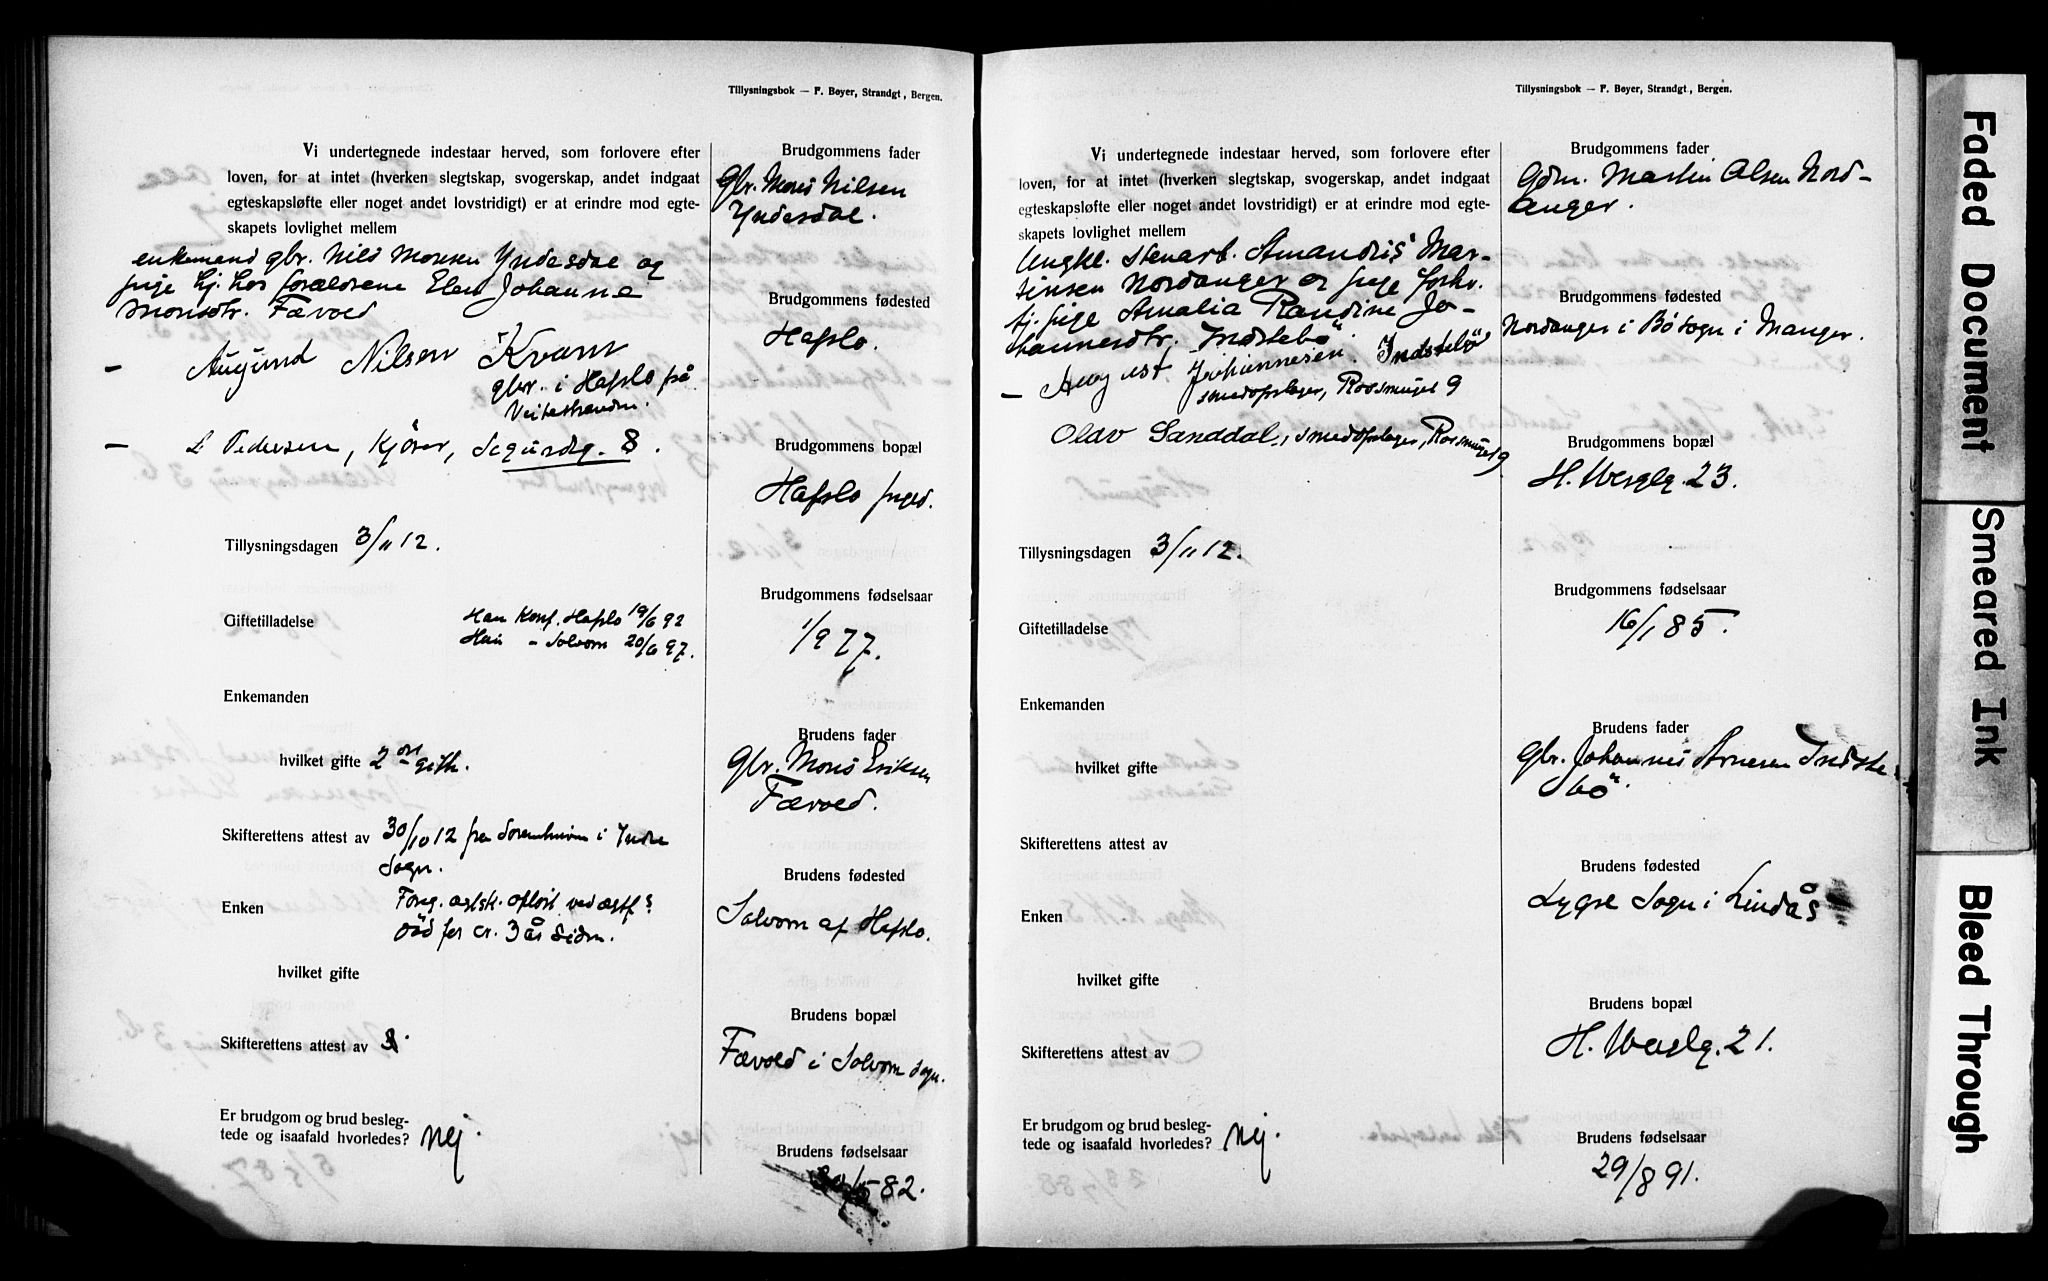 Tillysningsbok — F. Bøyer, Strandgt., Bergen.
Vi undertegnede indestaar herved, som forlovere efter
loven, for at intet (hverken slegtskap, svogerskap, andet indgaat
egteskapsløfte eller noget andet lovstridigt) er at erindre mod egte-
skapets lovlighet mellem
enkemand gbr. Nils Monsen Yndesdal og
pige hj. hos forældrene Elen Johanne
Monsdtr. Færvold
— Augund Nilsen Kvam
gbr. i Hafslo på
Veitestranden.
— L Pedersen, Kjører, Sigurdsg. 8.
Tillysningsdagen 3/11 12.
Giftetilladelse
Han Konf. Hafslo 19/6 92
Hun – Solvorn 20/6 97.
Enkemanden
hvilket gifte 2 gift.
Skifterettens attest av 30/10 12 fra Sorenskriveren i Yndre
Sogn.
Enken
Foreg. ægtsk. opløst ved
død for cr. 3 år siden.
hvilket gifte
Skifterettens attest av
Er brudgom og brud besleg-
tede og isaafald hvorledes? Nej.
Brudgommens fader
Gbr. Mons Nilsen
Yndesdal.
Brudgommens fødested
Hafslo.
Brudgommens bopæl
Hafslo prgjd.
Brudgommens fødselsaar
1/9 77.
Brudens fader
Gbr. Mons Eriksen
Færvold.
Brudens fødested
Solvorn af Hafslo.
Brudens bopæl
Færvold i Solvorn sogn.
Brudens fødselsaar
30/5 82.
Tillysningsbok — F. Bøyer, Strandgt., Bergen.
Vi undertegnede indestaar herved, som forlovere efter
loven, for at intet (hverken slegtskap, svogerskap, andet indgaat
egteskapsløfte eller noget andet lovstridigt) er at erindre mod egte-
skapets lovlighet mellem
Ungkl. Stenarb. Amandus Mar-
tinsen Nordanger og pige forhv.
tj. pige Amalia Randine Jo-
hannesdtr. Indstebø
— August Johannesen. Indstebø
smedopslager, Rosmuget 9
Olav Sanddal, smedopslager, Rosmuget 9
Tillysningsdagen 3/11 12.
Giftetilladelse
Enkemanden
hvilket gifte
Skifterettens attest av
Enken
hvilket gifte
Skifterettens attest av
Er brudgom og brud besleg-
tede og isaafald hvorledes? Nej.
Brudgommens fader
Gdm. Martin Olsen Nord-
anger.
Brudgommens fødested
Nordanger i Bø sogn i Manger.
Brudgommens bopæl
H. Wesglg. 23.
Brudgommens fødselsaar
16/1 85.
Brudens fader
Gbr. Johannes Arnesen Indste-
bö.
Brudens fødested
Lygre Sogn i Lindås
Brudens bopæl
H. Weslg. 21.
Brudens fødselsaar
29/8 91.
Faded Document
Smeared Ink
Bleed Through